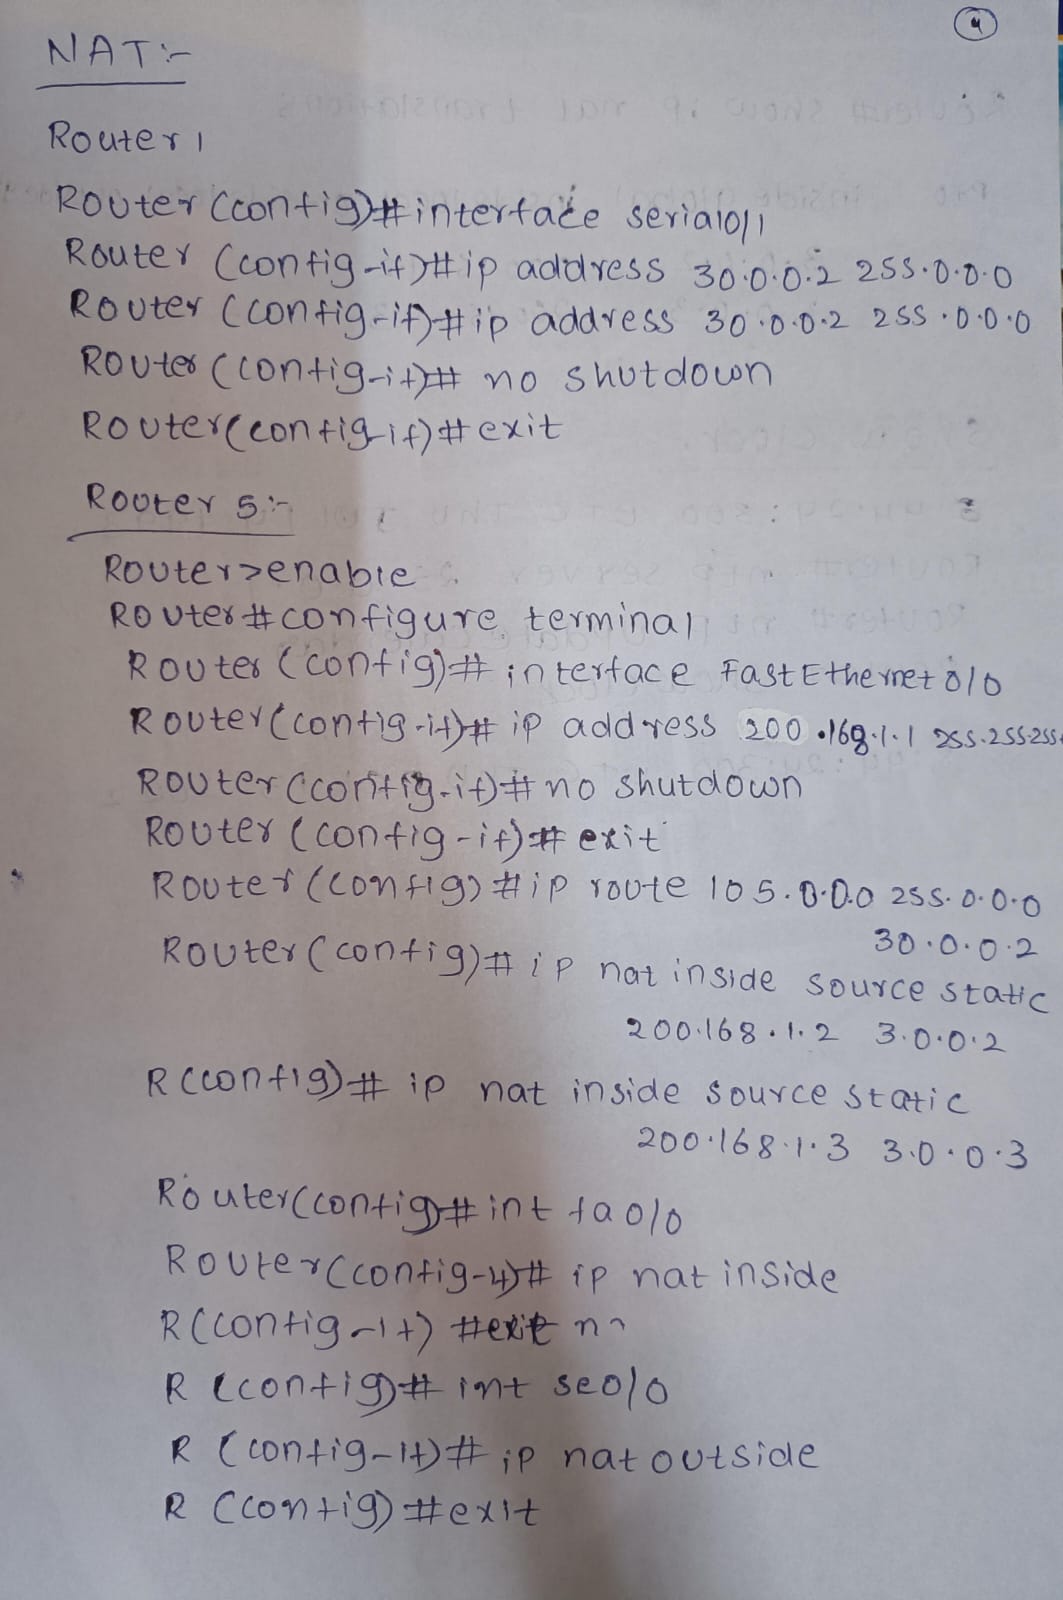 4
NAT:-
Router 1
Router (config)# interface serial0/1
Router (config-if)# ip address 30.0.0.2 255.0.0.0
Router (config-if)# ip address 30.0.0.2 255.0.0.0
Router (config-if)# no shutdown
Router(config-if)# exit
Router 5:-
Router>enable
Router#configure terminal
Router (config)# interface FastEthernet 0/0
Router (config-if)# ip address 200.168.1.1 255.255.255.
Router (config-if)# no shutdown
Router (config-if)# exit
Router (config) #ip route 105.0.0.0 255.0.0.0
30.0.0.2
Router (config)# ip nat inside source static
200.168.1.2 3.0.0.2
R (config)# ip nat inside source static
200.168.1.3 3.0.0.3
Router(config)# int fa0/0
Router (config-if)# ip nat inside
R (config-if) #exit
R (config)# int se0/0
R (config-if)# ip nat outside
R (config) #exit